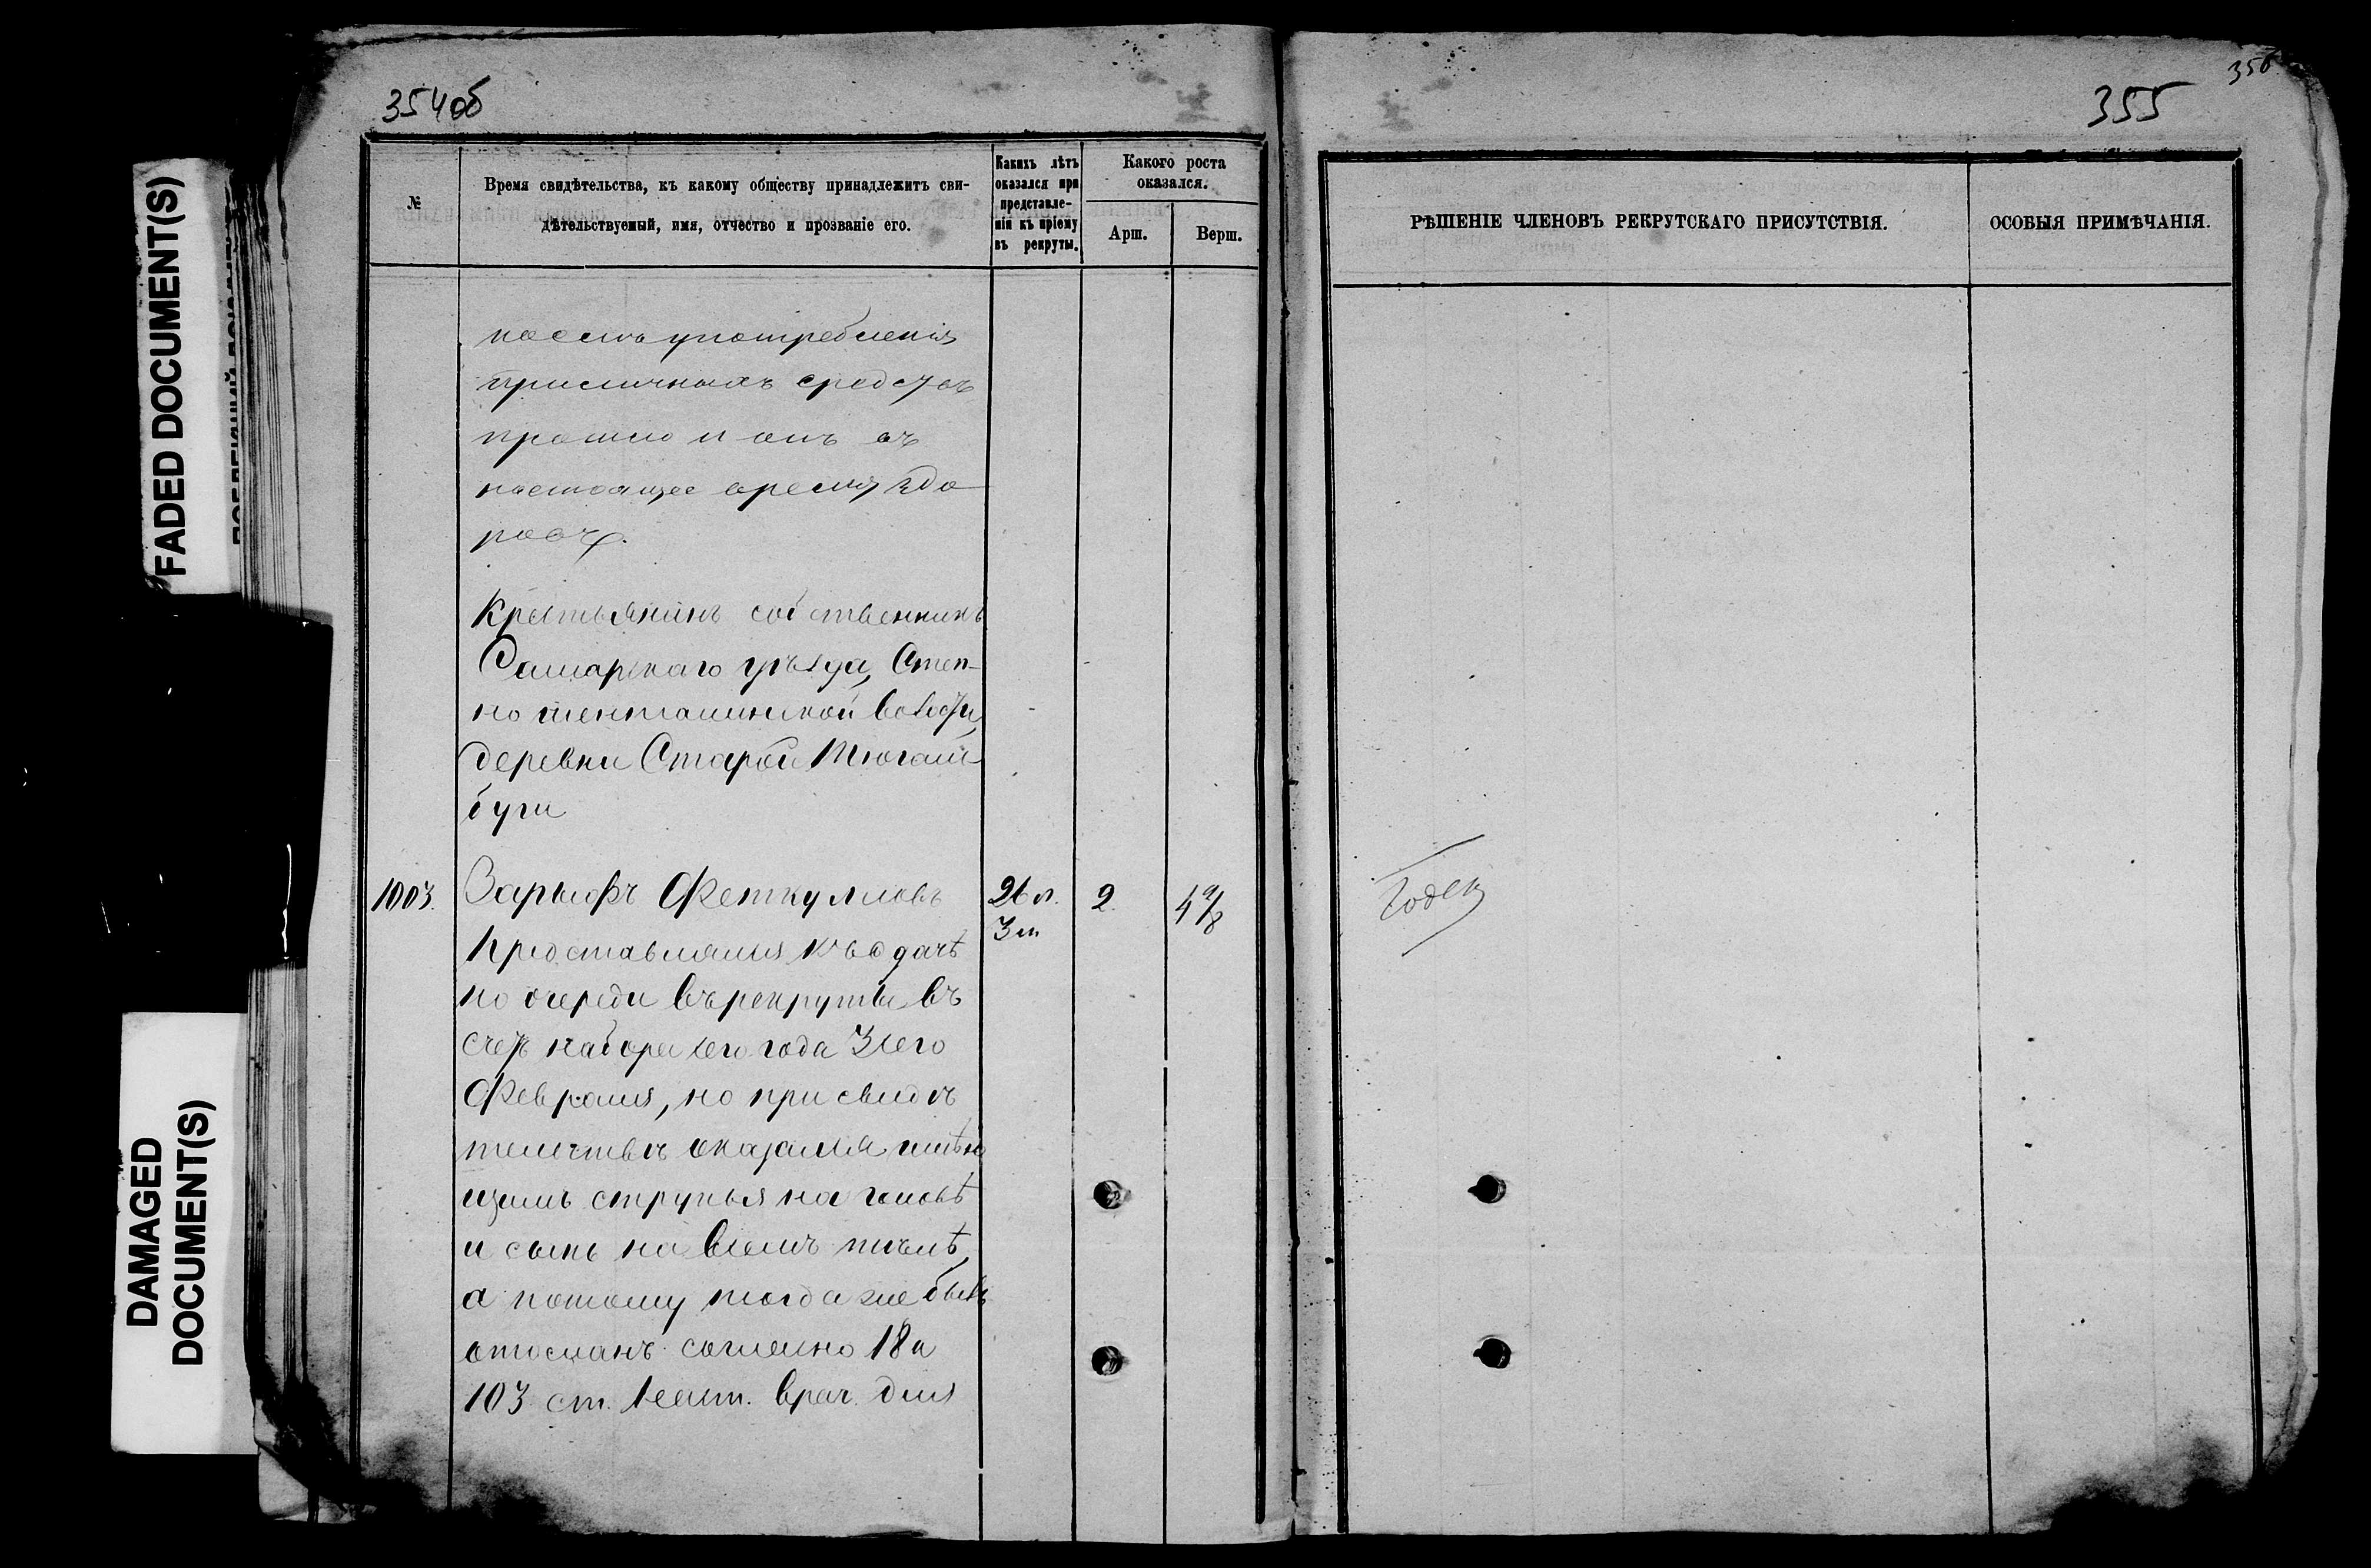 354 об
355
356
FADED DOCUMENT(S)
DAMAGED
DOCUMENT(S)
№
Время свидѣтельства, къ какому обществу принадлежитъ сви-
дѣтельствуемый, имя, отчество и прозваніе его.
Какихъ лѣтъ
оказался при
представле-
ніи къ пріему
въ рекруты.
Какого роста
оказался.
Арш.
Верш.
РѢШЕНІЕ ЧЛЕНОВЪ РЕКРУТСКАГО ПРИСУТСТВІЯ.
ОСОБЫЯ ПРИМѢЧАНІЯ.
употребленія
приличныхъ средствъ
прошло и онъ въ
настоящее время здо-
ровъ.
Крестьянинъ собственникъ
Самарскаго уѣзда, Степ-
но волости,
деревни Старой Тюгаль-
буги
1003.
Зарыфъ Феткулловъ
26 л.
3 м
2.
4
Годен
Представлялся къ отдачѣ
по очереди въ рекруты въ
счетъ набора сего года 3 сего
Февраля, но при свидѣ
тельствѣ оказался имѣю
щимъ струпья на головѣ
и сыпь на всемъ тѣлѣ,
а потому тогда же былъ
отосланъ согласно 18 и
103 ст. Наст. врач. для